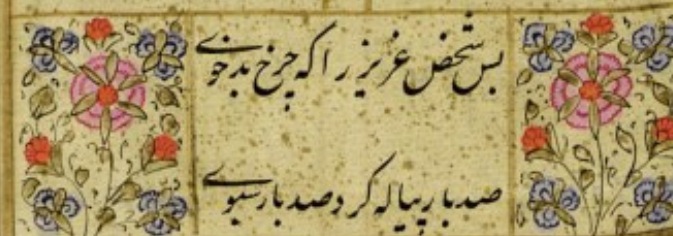 بس شخص عزیز را که چرخ بدخوی
صد بار پیاله کرد صد بار سبوی